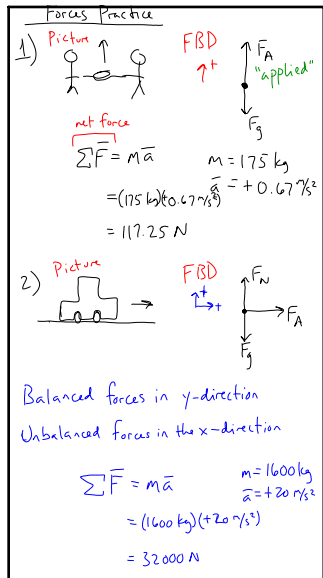 Forces Practice
1) Picture FBD
+
F̅_A
"applied"
F̅g
net force
ΣF̅ = ma̅
m = 175 kg
a̅ = +0.67 m/s²
= (175 kg)(+0.67 m/s²)
= 117.25 N
2) Picture FBD
+
+
F_N
F_A
F̅g
Balanced forces in y-direction
Unbalanced forces in the x-direction
ΣF̅ = ma̅
m = 1600 kg
a̅ = +20 m/s²
= (1600 kg)(+20 m/s²)
= 32000 N